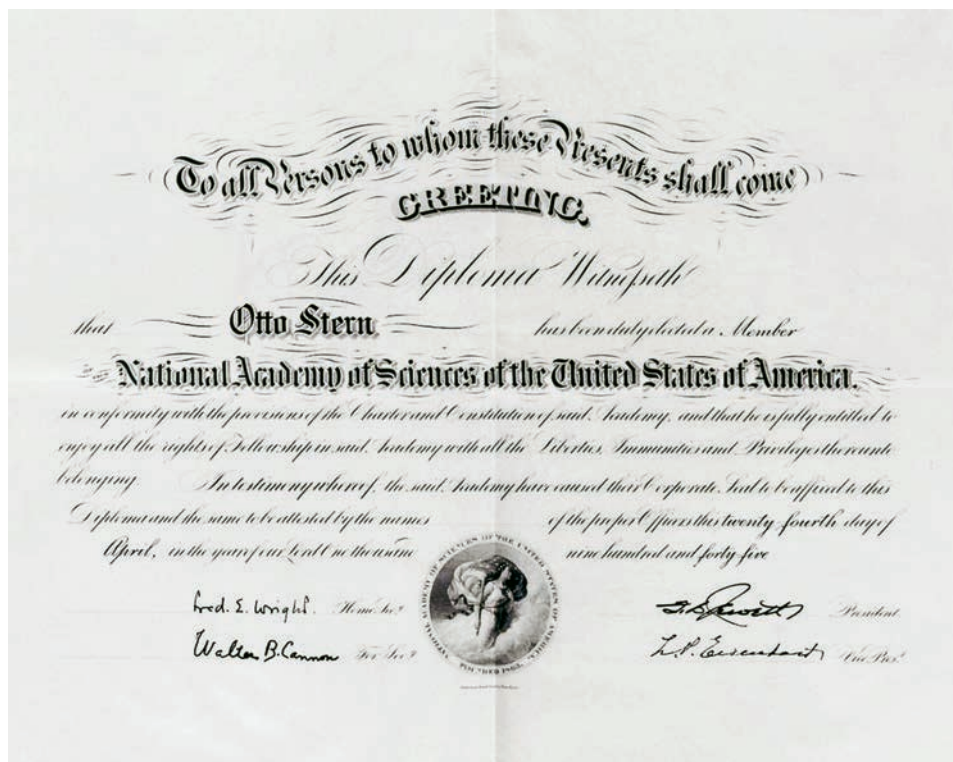 To all Persons to whom these Presents shall come
GREETING.
This Diploma Witnesseth
that Otto Stern has been duly elected a Member
National Academy of Sciences of the United States of America.
in conformity with the provisions of the Charter and Constitution of said Academy, and that he is fully entitled to
enjoy all the rights of Fellowship in said Academy with all the Liberties, Immunities and Privileges thereunto
belonging. In testimony whereof, the said Academy have caused their Corporate Seal to be affixed to this
Diploma and the same to be attested by the names of the proper Officers this twenty fourth day of
April, in the year of our Lord One thousand nine hundred and forty five
NATIONAL ACADEMY OF SCIENCES OF THE UNITED STATES OF AMERICA.
FOUNDED 1863.
Fred. E. Wright. Home Sec.y President
Walter B. Cannon For Sec.y L.P. Eisenhart Vice Pres.t